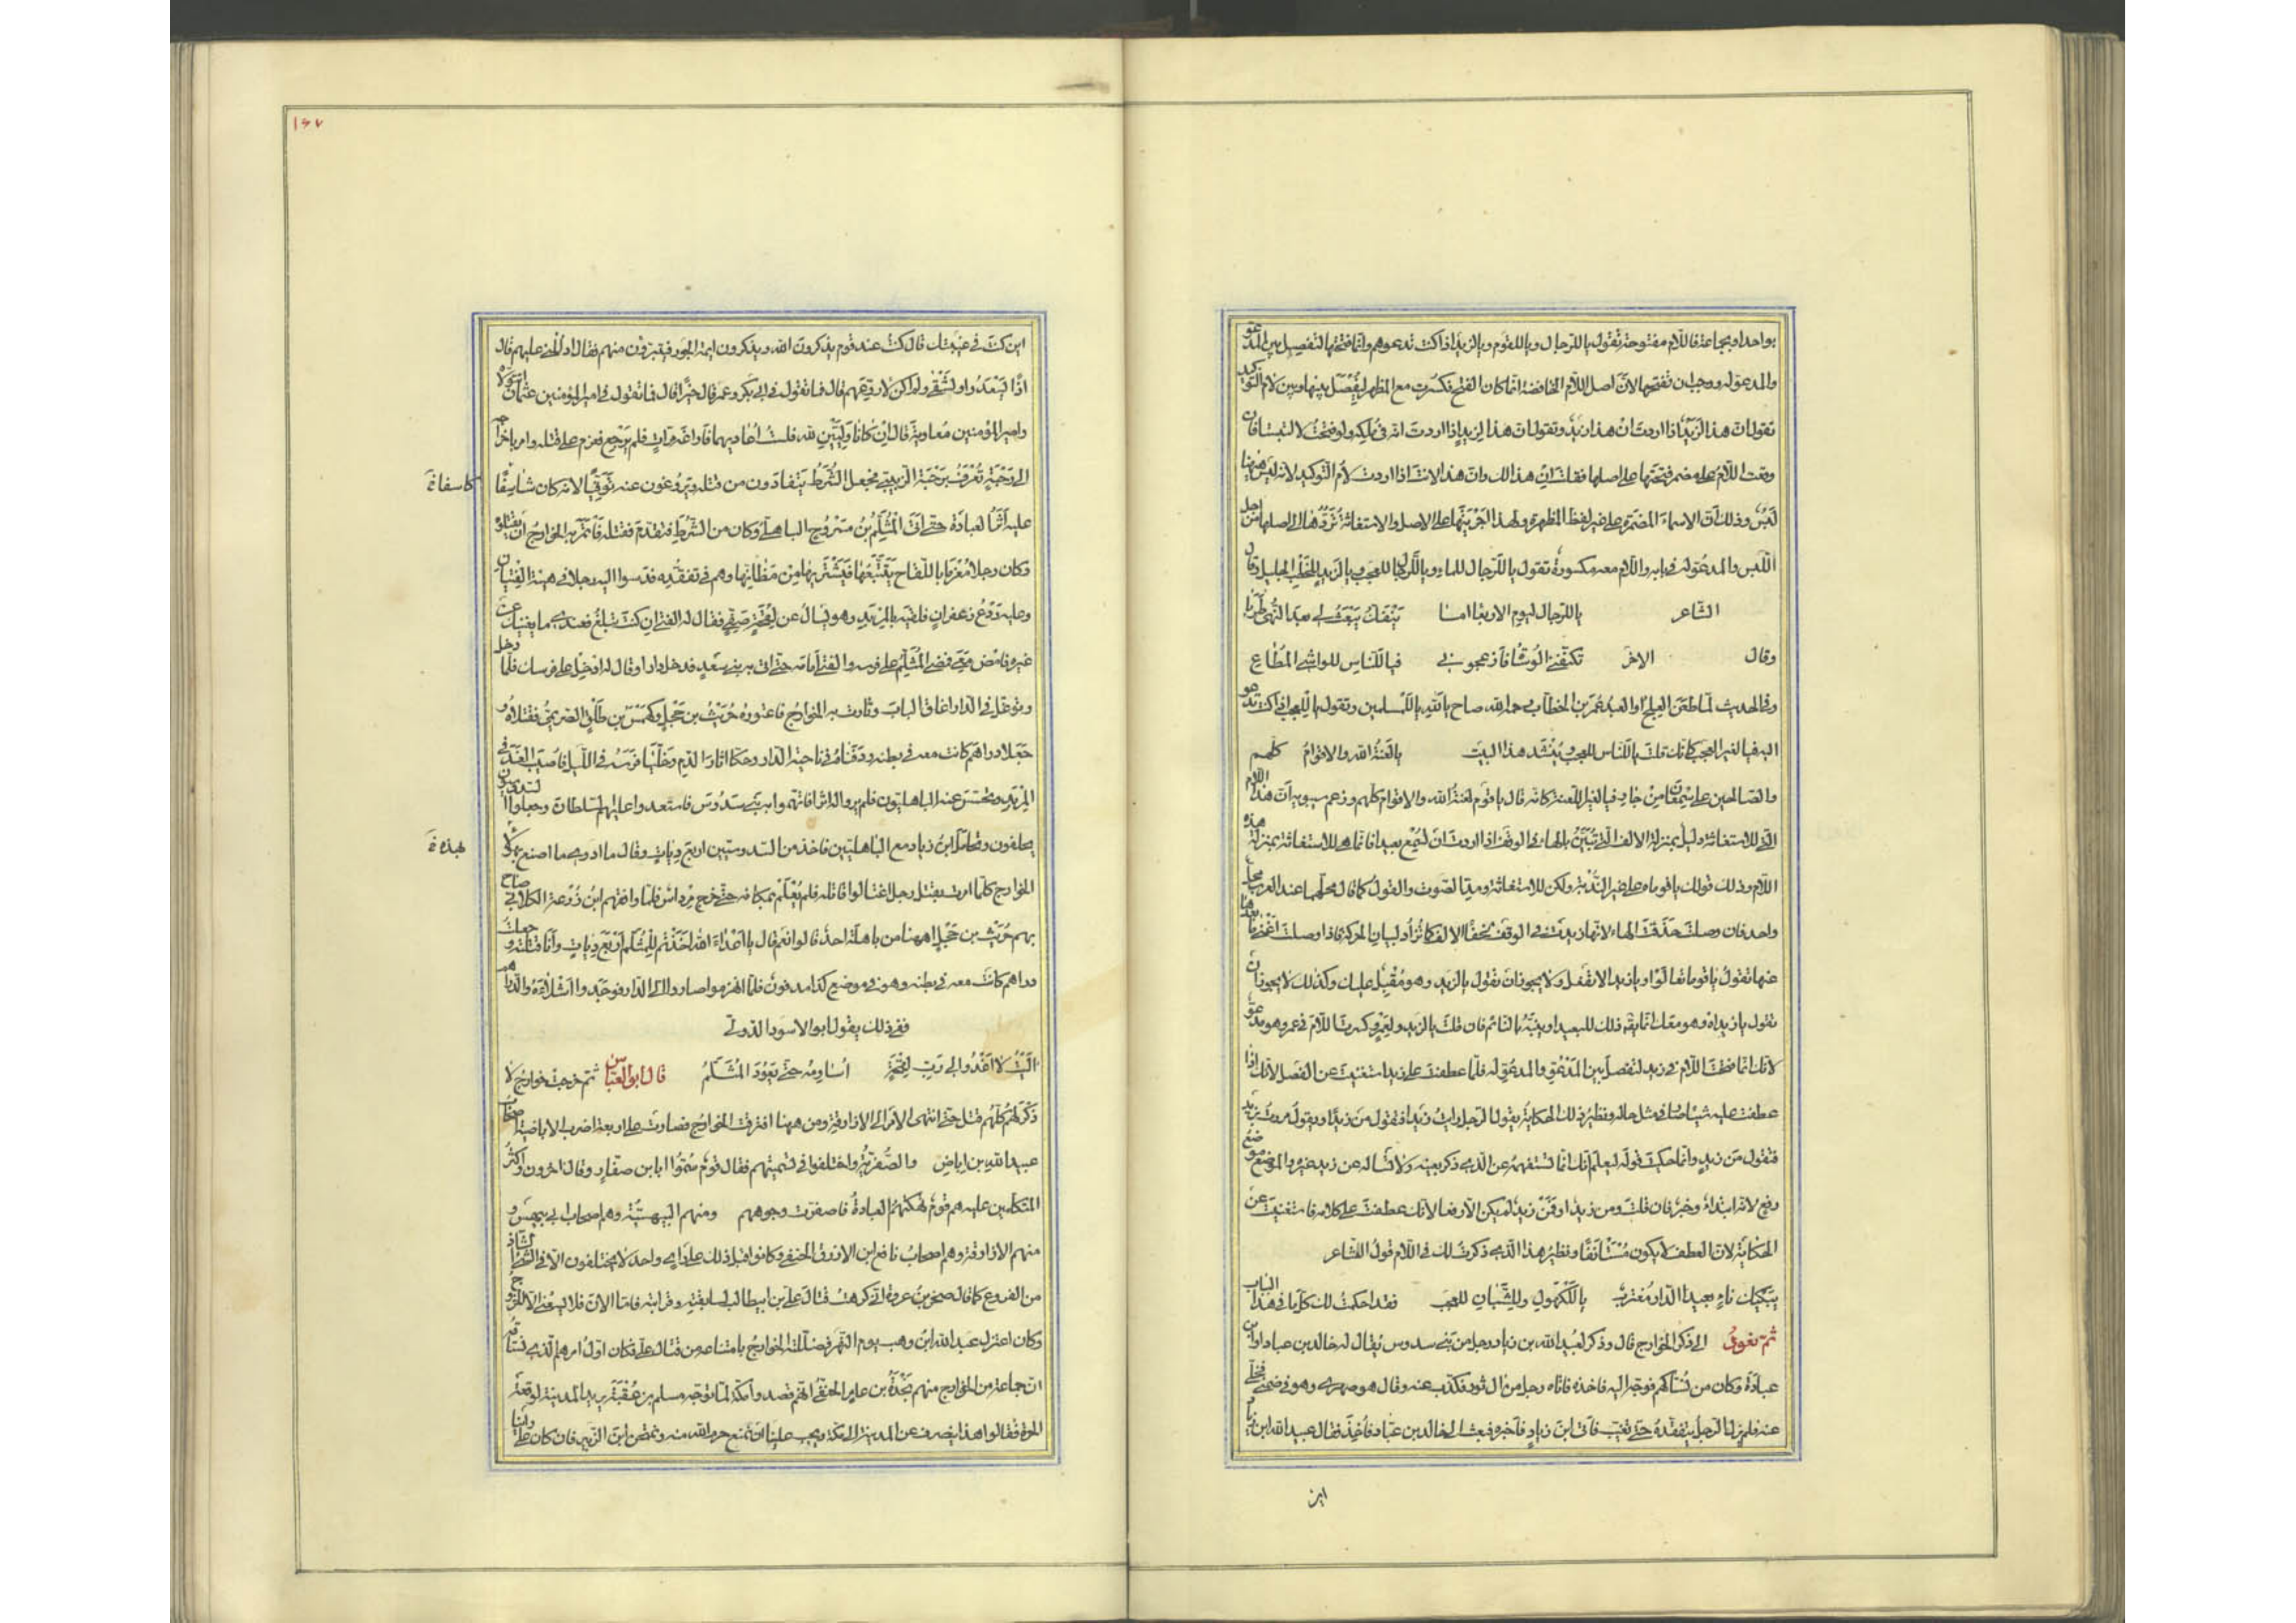 بواحد او بجماعة فاللام مفتوحة تقول يا للرجال ويا للقوم ويا لزيد اذا كنت تدعوهم وانما فتحتها لتفصل بين المدعو
والمدعو له ووجب ان تفتحها لان اصل اللام الخافضة انما كان الفتح فكسرت مع المظهر ليفصل بينها وبين لام التوكيد
تقول ان هذا لزيد اذا اردت ان هذا زيد وتقول ان هذا لزيد اذا اردت انه في ملكه ولو فتحت لالتبستا فان
وقعت اللام على مضمر فتحتها على اصلها فقلت ان هذا لك وان هذا لانت اذا اردت لام التوكيد لانه ليس ههنا
لبس وذلك ان الاسماء المضمرة على غير لفظ المظهرة ولهذا اجريتها على الاصل والاستغاثة تردها الى اصلها من اجل
اللبس والمدعو له في بابه واللام معه مكسورة تقول يا للرجال للماء ويا للرجال للعجب ويا لزيد للخطب الجليل قال
الشاعر يا للرجال ليوم الاربعا اما ينفك يبعث لي بعد النهى طربا
وقال الاخر تكنفني الوشاة فازعجوني فيا للناس للواشي المطاع
وفي الحديث لما طعن العلج او العبد عمر بن الخطاب رحمه الله صاح يا لله يا للمسلمين وتقول يا للعجب اذا كنت تدعو
اليه فيا لغير العجب كانك قلت يا للناس للعجب وينشد هذا البيت يا لعنة الله والاقوام كلهم
والصالحين على سمعان من جار فيا لغير اللعنة كانه قال يا قوم لعنة الله والاقوام كلهم وزعم سيبويه ان هذه اللام
التي للاستغاثة دليل بمنزلة الالف التي تبين بالهاء في الوقف اذا اردت ان تسمع بعيدا فانما هي للاستغاثة بمنزلة هذه
اللام وذلك قولك يا قوماه على غير الندبة ولكن للاستغاثة ومد الصوت والقول كما قال محلهما عند العرب محل
واحد فان وصلت حذفت الهاء لانها زيدت في الوقف لخفاء الالف كما تزاد لبيان الحركة فاذا وصلت اغنى ما بعدها
عنها تقول يا قوما تعالوا ويا زيدا لا تفعل ولا يجوز ان تقول يا لزيد وهو مقبل عليك وكذلك لا يجوز ان
تقول يا زيداه وهو معك انما يقال ذلك للبعيد او ينبه به النائم فان قلت يا لزيد ولعمرو كسرت اللام في عمرو وهو مدعو
لانك انما فتحت اللام في زيد لتفصل بين المدعو والمدعو له فلما عطفت على زيد استغنيت عن الفصل لانك اذا
عطفت عليه شيئا صار في مثل حاله ونظير ذلك الحكاية يقول الرجل رايت زيدا فتقول من زيدا ويقول مررت بزيد
فتقول من زيد وانما حكيت قوله ليعلم انك انما تستفهمه عن الذي ذكر بعينه ولا تساله عن زيد غيره والموضع موضع
رفع لانه ابتداء وخبر فان قلت ومن زيد او فمن زيد لم يكن الا رفعا لانك عطفت على كلامه فاستغنيت عن
الحكاية لان العطف لا يكون مستانفا ونظير هذا الذي ذكرت لك في اللام قول الشاعر
يبكيك ناء بعيد الدار مغترب يا للكهول وللشبان للعجب فقد احكمت لك كل ما في هذا الباب
ثم نعود الى ذكر الخوارج قال وذكر لعبيد الله بن زياد رجل من بني سدوس يقال له خالد بن عباد او ابن
عبادة وكان من نساكهم فوجه اليه فاخذه فاتاه رجل من ال ثور فكذب عنه وقال هو صهري وهو في ضمني فخلى
عنه فلم يزل الرجل يتفقده حتى تغيب فاتى ابن زياد فاخبره فبعث الى خالد بن عباد فاخذ فقال عبيد الله ابن زياد
اين
١٤٧
اين كنت في غيبتك قال كنت عند قوم يذكرون الله ويذكرون ايمة الجور فيتبرؤن منهم فقال ادللني عليهم قال
اذا يسعدوا وتشقى ولم اكن لاروعهم قال فما تقول في ابي بكر وعمر قال خيرا قال فما تقول في امير المؤمنين عثمان اتتولاه
وامير المؤمنين معاوية قال ان كانا وليين لله فلست اعاديهما فاراغه مرات فلم يرجع فعزم على قتله وامر باخراجه
الى رحبة تعرف برحبة الزينبي فجعل الشرط يتفادون من قتله ويروغون عنه توقيا لانه كان شاسفا
كاسفا ة
عليه اثر العبادة حتى اتى المثلم بن مسروح الباهلي وكان من الشرط فتقدم فقتله فائتمر به الخوارج ان يقتلوه
وكان رجلا مغرما باللقاح يتتبعها فيشتريها من مظانها وهم في تفقده فدسوا اليه رجلا في هيئة الفتيان
وعليه ردع زعفران فلقيه بالمربد وهو يسال عن لقحة صفي فقال له الفتى ان كنت تبلغ فعندي ما يغنيك عن
غيره فامض معي فمضى المثلم على فرسه والفتى امامه حتى اتى به بني سعد فدخل دارا وقال له ادخل على فرسك فلما دخل
وتوغل في الدار اغلق الباب وثارت به الخوارج فاعتوره حريث بن حجل وكهمس بن طلق الصريمي فقتلاه و
جعلا دراهم كانت معه في بطنه ودفناه في ناحية الدار وحكا اثار الدم وخليا فرسه في الليل فاصيب الغد في
المربد وتجسس عنه الباهليون فلم يروا له اثرا فاتهموا به بني سدوس فاستعدوا عليهم السلطان وجعل السدوسيون
يحلفون وتحامل ابن زياد مع الباهليين فاخذ من السدوسيين اربع ديات وقال ما ادري ما اصنع بهؤلاء
بهذه ة
الخوارج كلما امرت بقتل رجل اغتالوا قاتله فلم يعلم بمكانه حتى خرج مرداس فلما واقفهم ابن زرعة الكلابي صاح
بهم حريث بن حجل اههنا من باهلة احد قالوا نعم قال يا اعداء الله اخذتم للمثلم اربع ديات وانا قتلته وجعلت
دراهم كانت معه في بطنه وهو في موضع كذا مدفون فلما انهزموا صاروا الى الدار فوجدوا اشلاءه والدراهم
ففي ذلك يقول ابو الاسود الدؤلي
اليت لا اغدو الى رب لقحة اساومه حتى يعود المثلم قال ابو العباس ثم خرجت خوارج لا
ذكر لهم كلهم قتل حتى انتهى الامر الى الازارقة ومن ههنا افترقت الخوارج فصارت على اربعة اضرب الاباضية اصحاب
عبد الله بن اباض والصفرية واختلفوا في تسميتهم فقال قوم سموا بابن صفار وقال اخرون واكثر
المتكلمين عليه هم قوم نهكتهم العبادة فاصفرت وجوههم ومنهم البيهسية وهم اصحاب ابي بيهس و
منهم الازارقة وهم اصحاب نافع ابن الازرق الحنفي وكانوا قبل ذلك على راي واحد لا يختلفون الا في الشئ الشاذ
من الفروع كما قال صخر بن عروة اني كرهت قتال علي بن ابيطالب لسابقته وقرابته فاما الان فلا يسعني الا الخروج
وكان اعتزل عبد الله ابن وهب يوم النهر فضللته الخوارج بامتناعه من قتال علي فكان اول امرهم الذي نستاقه
ان جماعة من الخوارج منهم نجدة بن عامر الحنفي اهم قصدوا مكة لما توجه مسلم بن عقبة يريد المدينة لوقعة
الحرة فقالوا هذا ينصرف عن المدينة الى مكة ويجب علينا ان نمنع حرم الله منه ونمتحن ابن الزبير فان كان على راينا